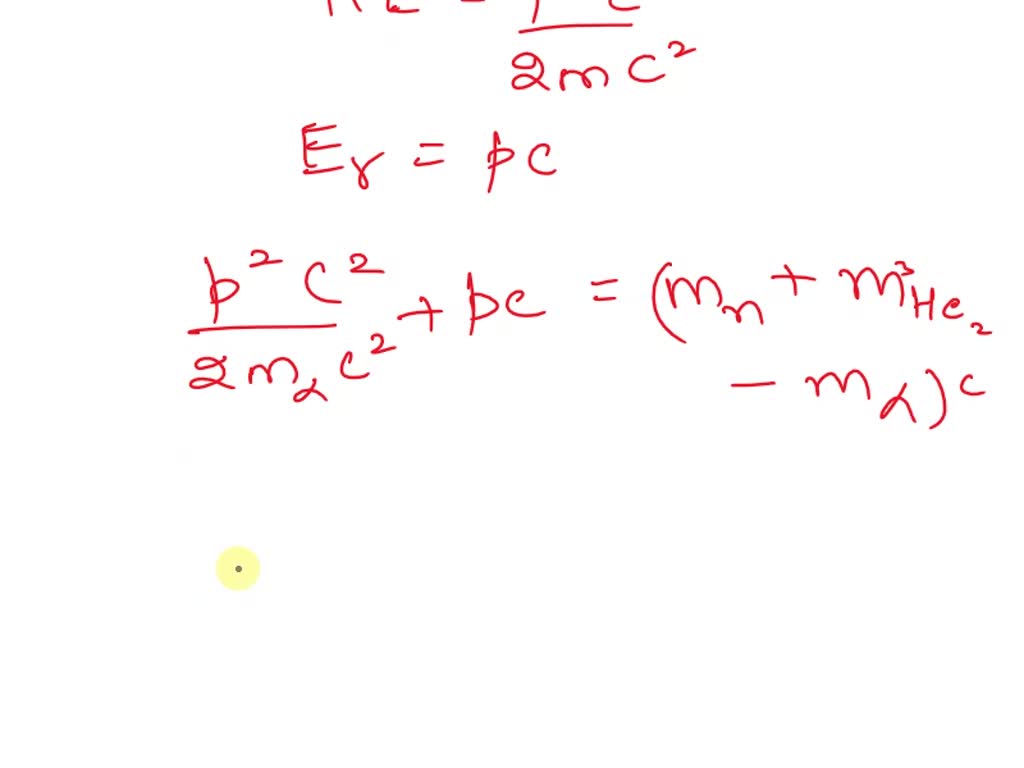 2mc²
Eγ = pc
p²c²/2m₂c² + pc = (mn + m³He₂
- mα)c